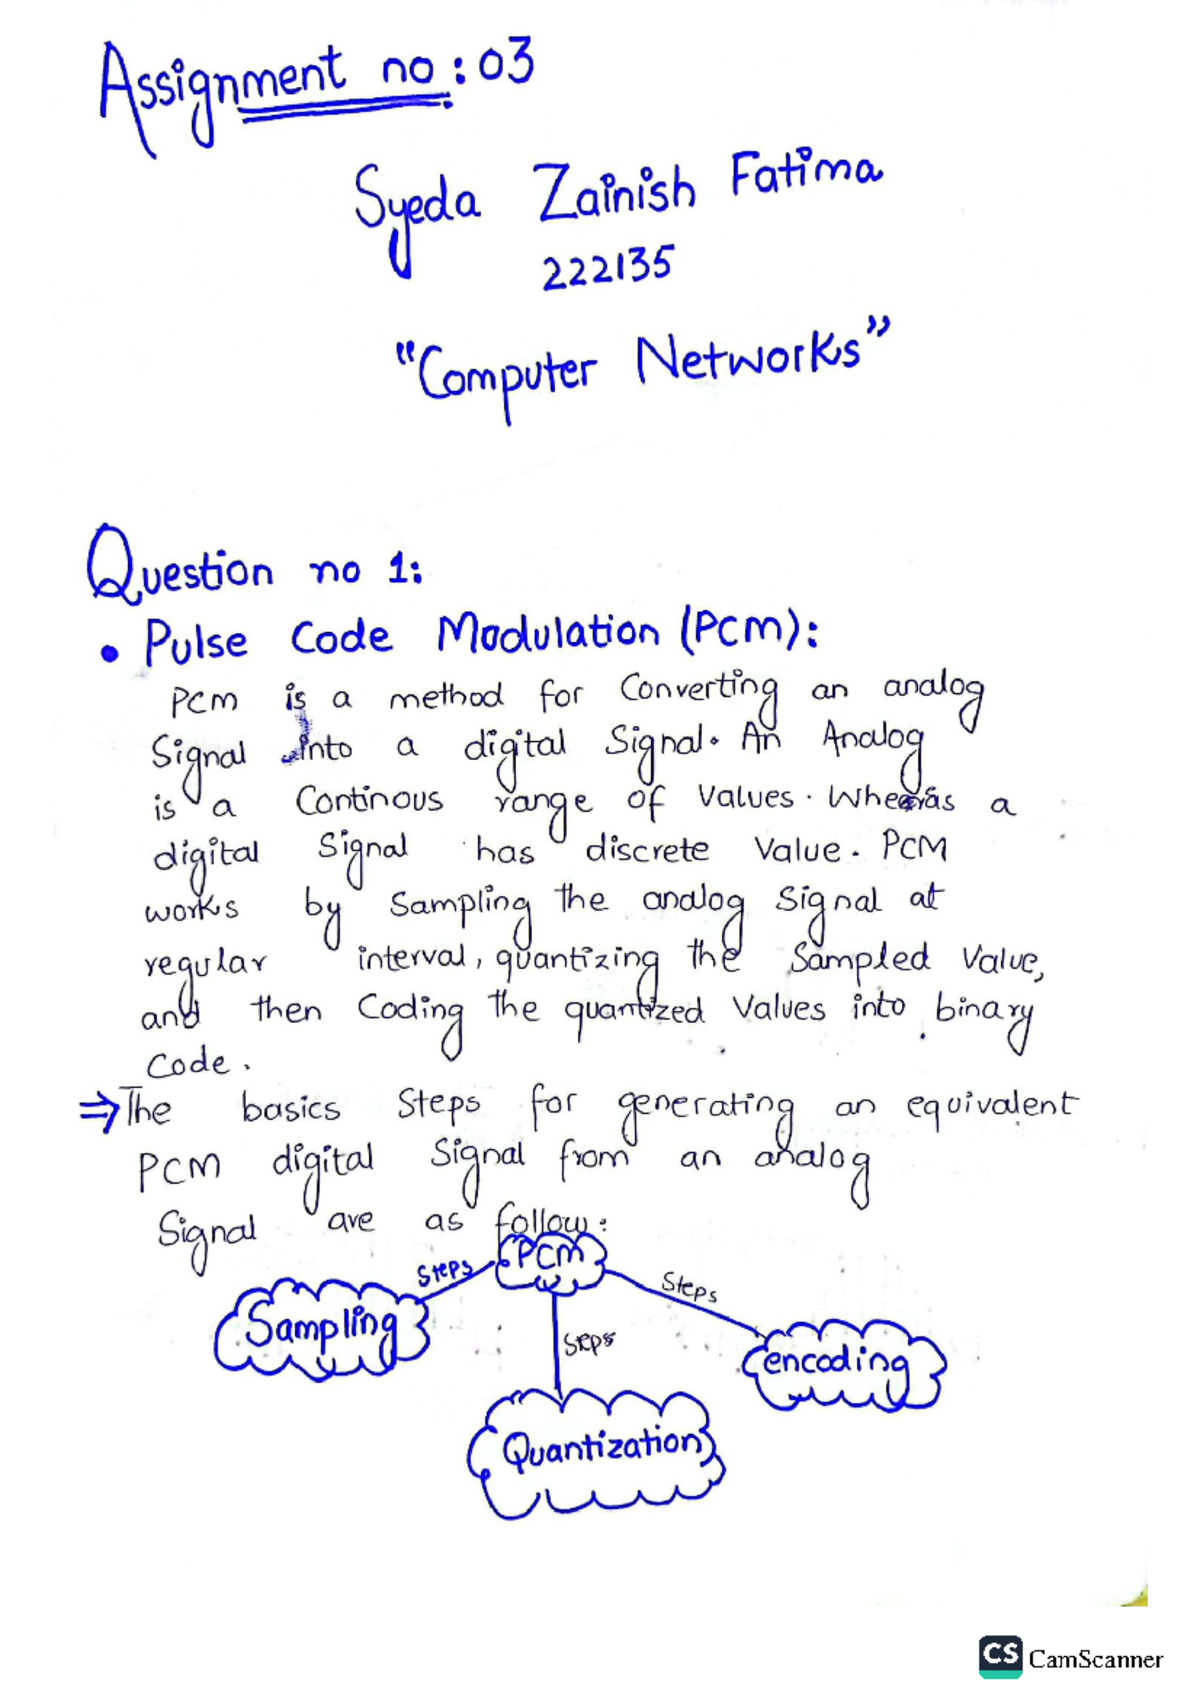 Assignment no: 03
Syeda Zainish Fatima
222135
"Computer Networks"
Question no 1:
• Pulse Code Modulation (PCM):
PCM is a method for Converting an analog
Signal into a digital Signal. An Analog
is a Continous range of Values. Wheeras a
digital Signal has discrete Value. PCM
works by Sampling the analog Signal at
regular interval, quantizing the Sampled Value,
and then Coding the quantized Values into binary
Code.
⇒ The basics Steps for generating an equivalent
PCM digital Signal from an analog
Signal are as follow:
PCM
Steps
Steps
Sampling
Steps
encoding
Quantization
CS CamScanner